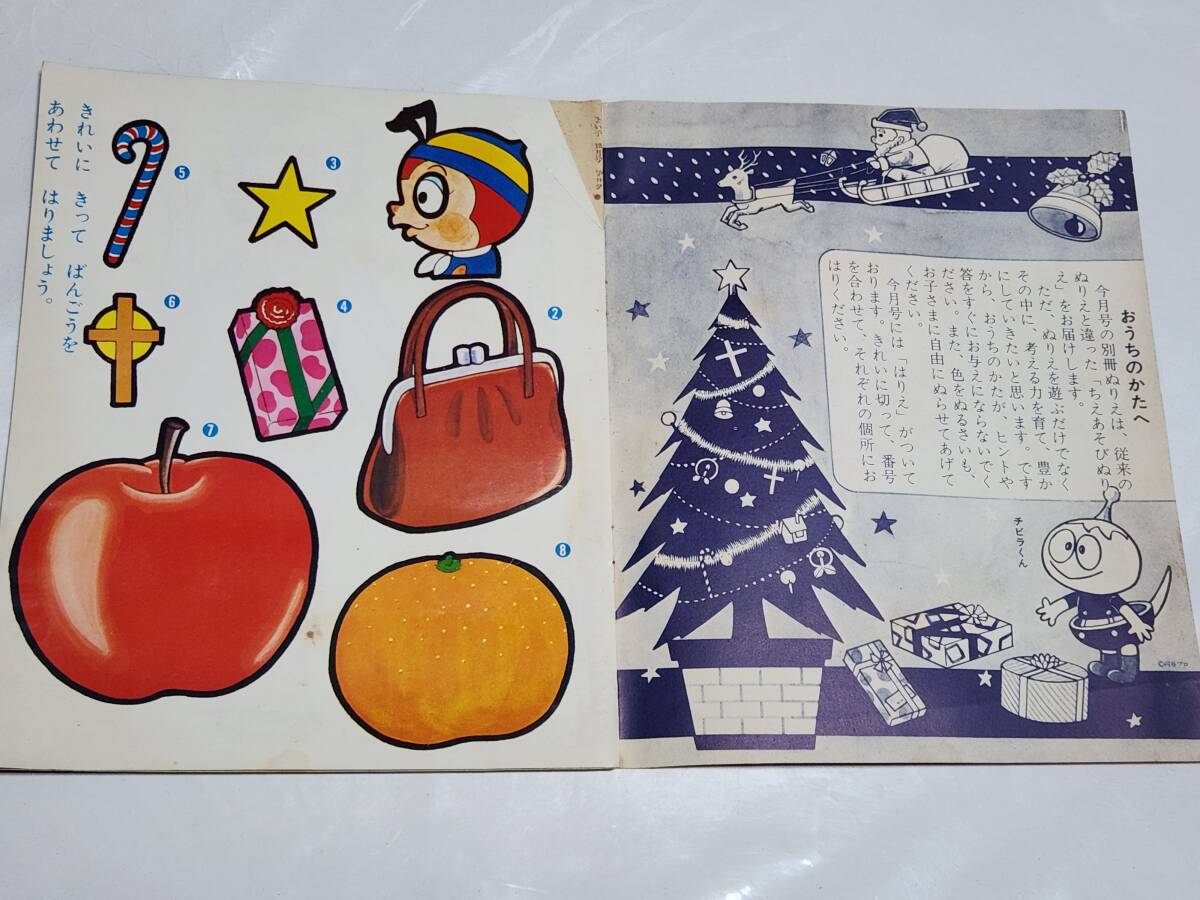 きれいに きって ばんごうを
あわせて はりましょう。
5
3
2
6
4
7
8
おうちのかたへ
今月号の別冊ぬりえは、従来の
ぬりえと違った「ちえあそびぬり
え」をお届けします。
ただ、ぬりえを遊ぶだけでなく
その中に、考える力を育て、豊か
にしていきたいと思います。です
から、おうちのかたが、ヒントや
答をすぐにお与えにならないでく
ださい。また、色をぬるさいも、
お子さまに自由にぬらせてあげて
ください。
今月号には「はりえ」がついて
おります。きれいに切って、番号
を合わせて、それぞれの個所にお
はりください。
チビラくん
©円谷プロ